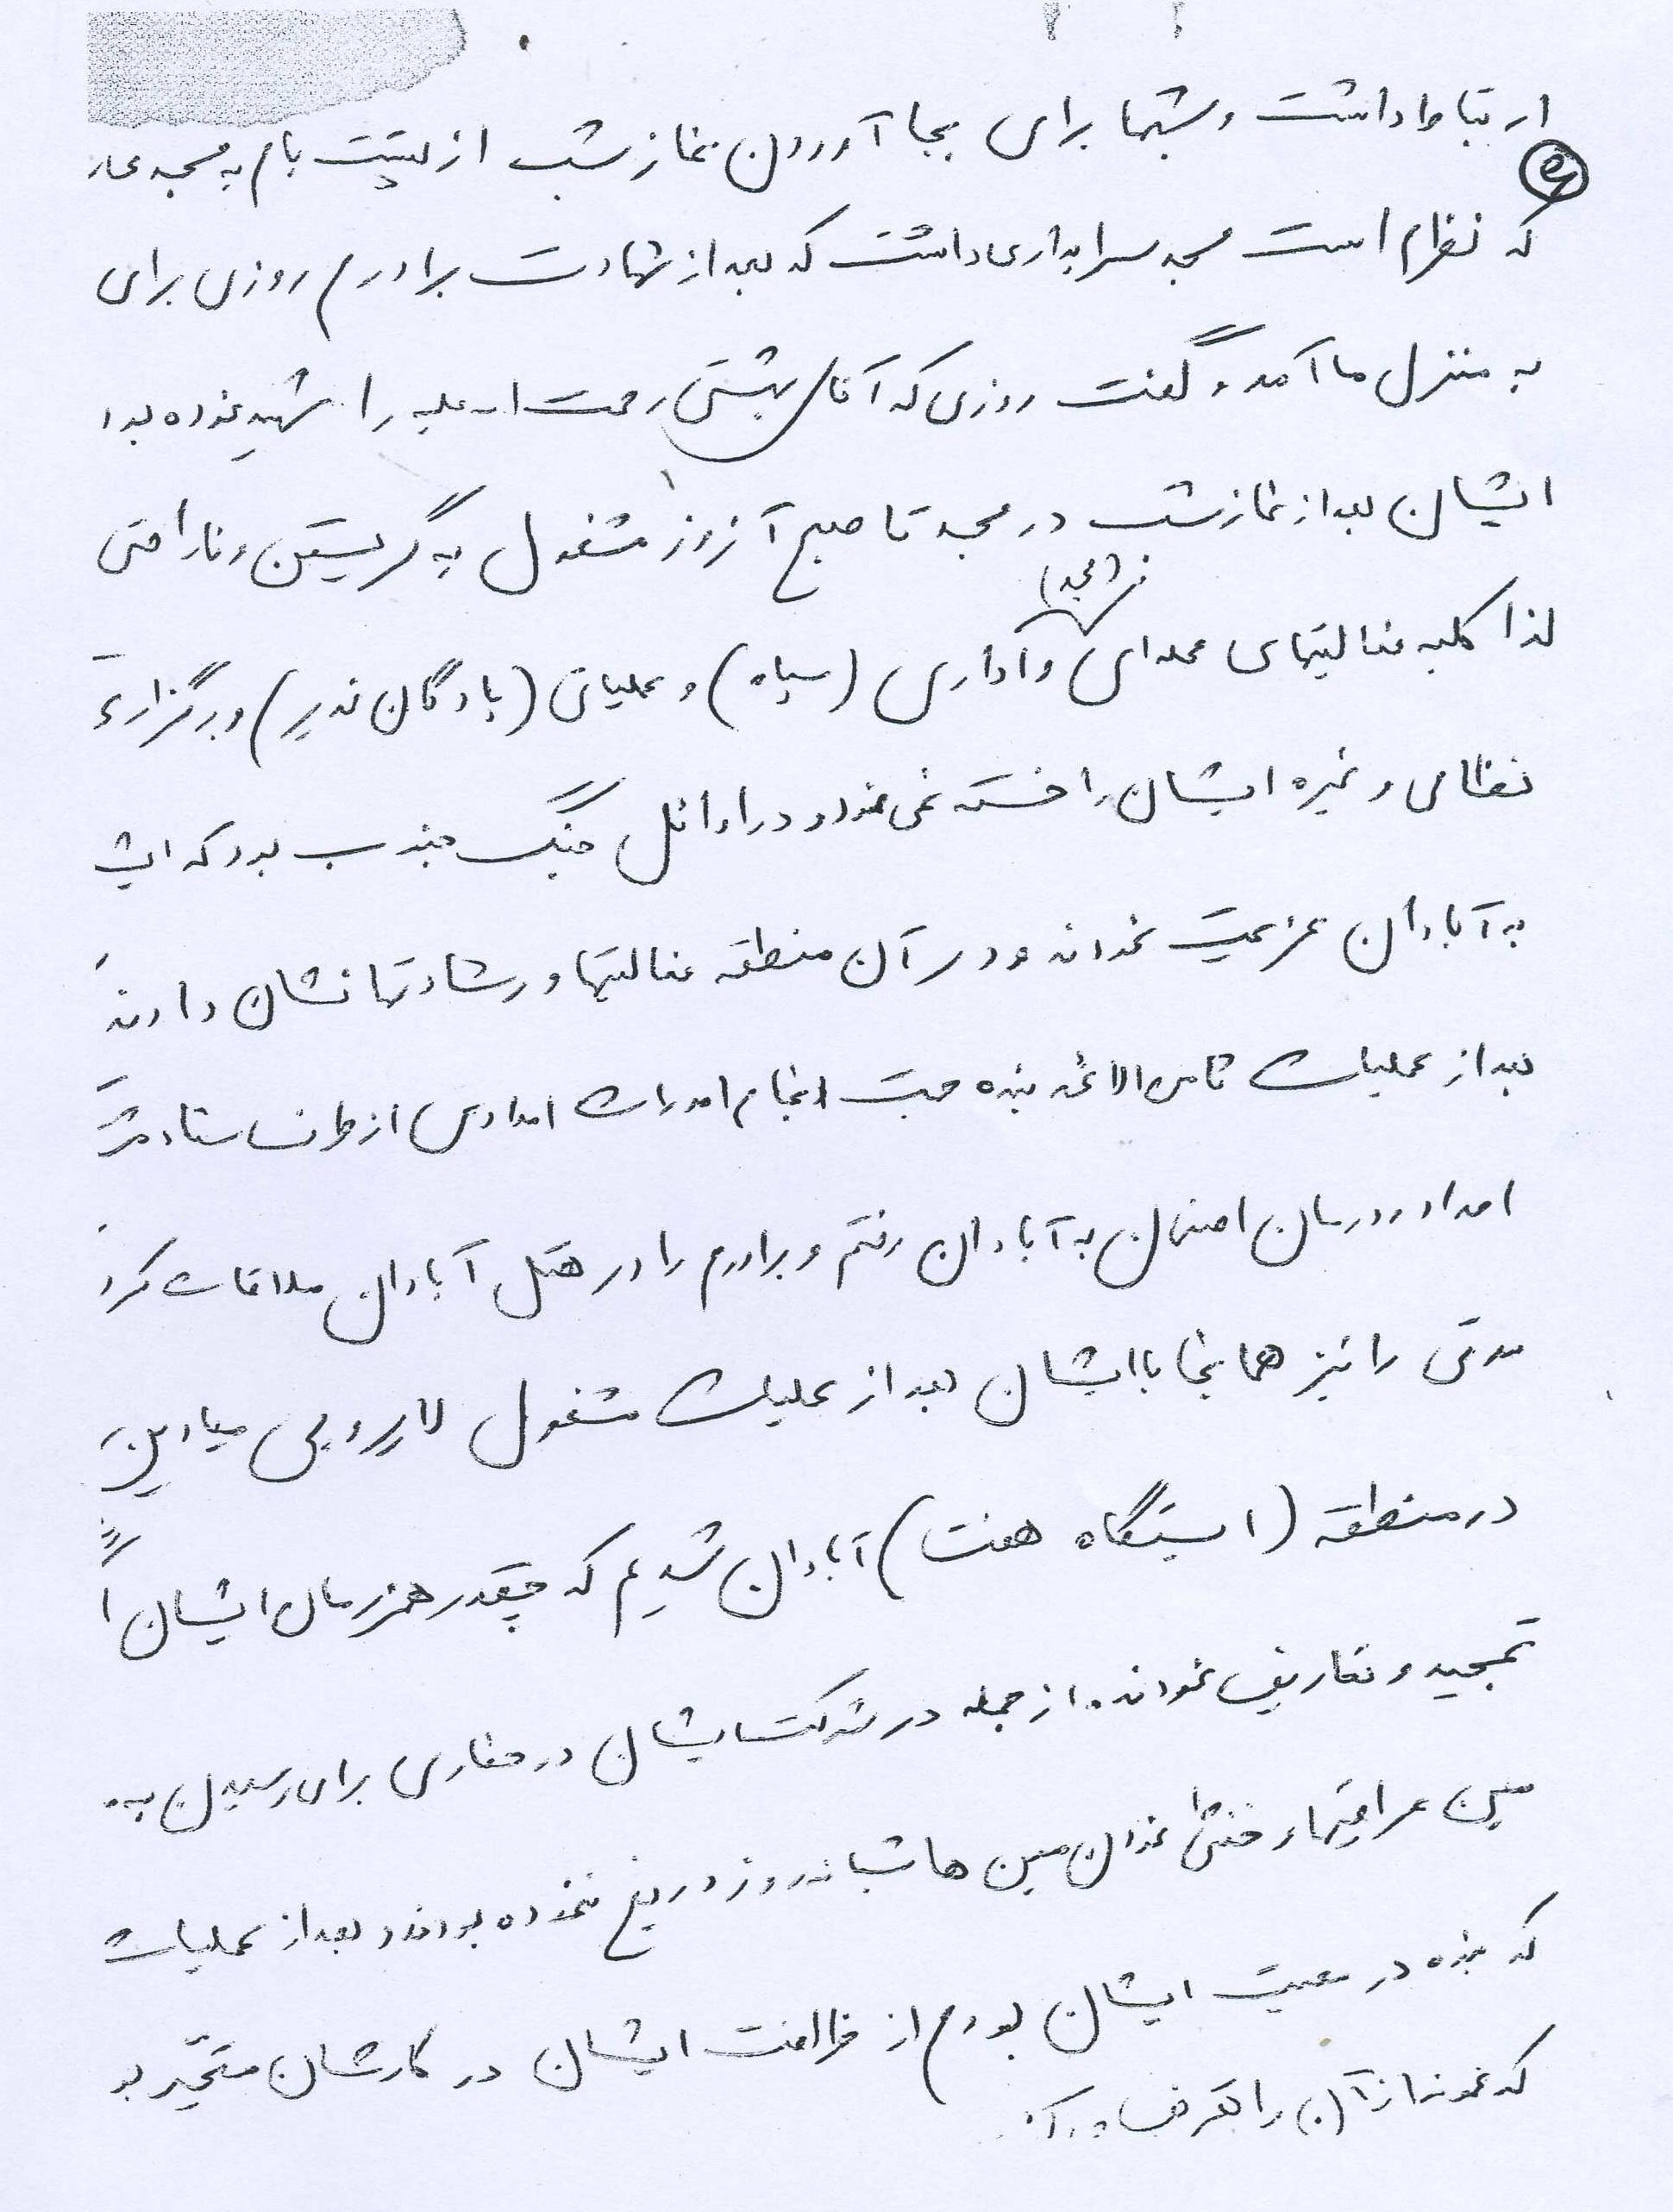 ارتباط داشت و شبها برای بجا آوردن نماز شب از پشت بام به مسجد
۵
که نظام است مسجد سرایداری داشت که بعد از شهادت برادرم روزی برای
به منزل ما آمد و گفت روزی که آقای بهشتی رحمت ا... علیه را شهید نموده بود
ایشان بعد از نماز شب در مسجد تا صبح آنروز مشغول به گریستن و ناراحتی
(مسجد)
لذا کلیه فعالیتهای محله‌ای و اداری (سپاه) و عملیاتی (پادگان غدیر) و برگزاری
نظامی و غیره ایشان را خسته نمی نمود و در اوائل جنگ جنوب بود که
به آبادان عزیمت نمودند و در آن منطقه فعالیتها و رشادتها نشان دادند
بعد از عملیات ثامن الائمه بنده جهت انجام امورات امدادی از طرف ستاد
امداد و درمان اصفهان به آبادان رفتم و برادرم را در هتل آبادان ملاقات
مدتی را نیز همانجا با ایشان بعد از عملیات مشغول لایروبی میادین
در منطقه (ایستگاه هفت) آبادان شدیم که چقدر همرزمان ایشان
تمجید و تعاریف نمودند. از جمله در شرکت ایشان در حفاری برای رسیدن به
مین عراقیها و خنثی نمودن مین ها شبانه روز دریغ ننموده بودند و بعد از عملیات
که بنده در معیت ایشان بودم از ظرافت ایشان در کارشان متحیر
که نمونه از آن را